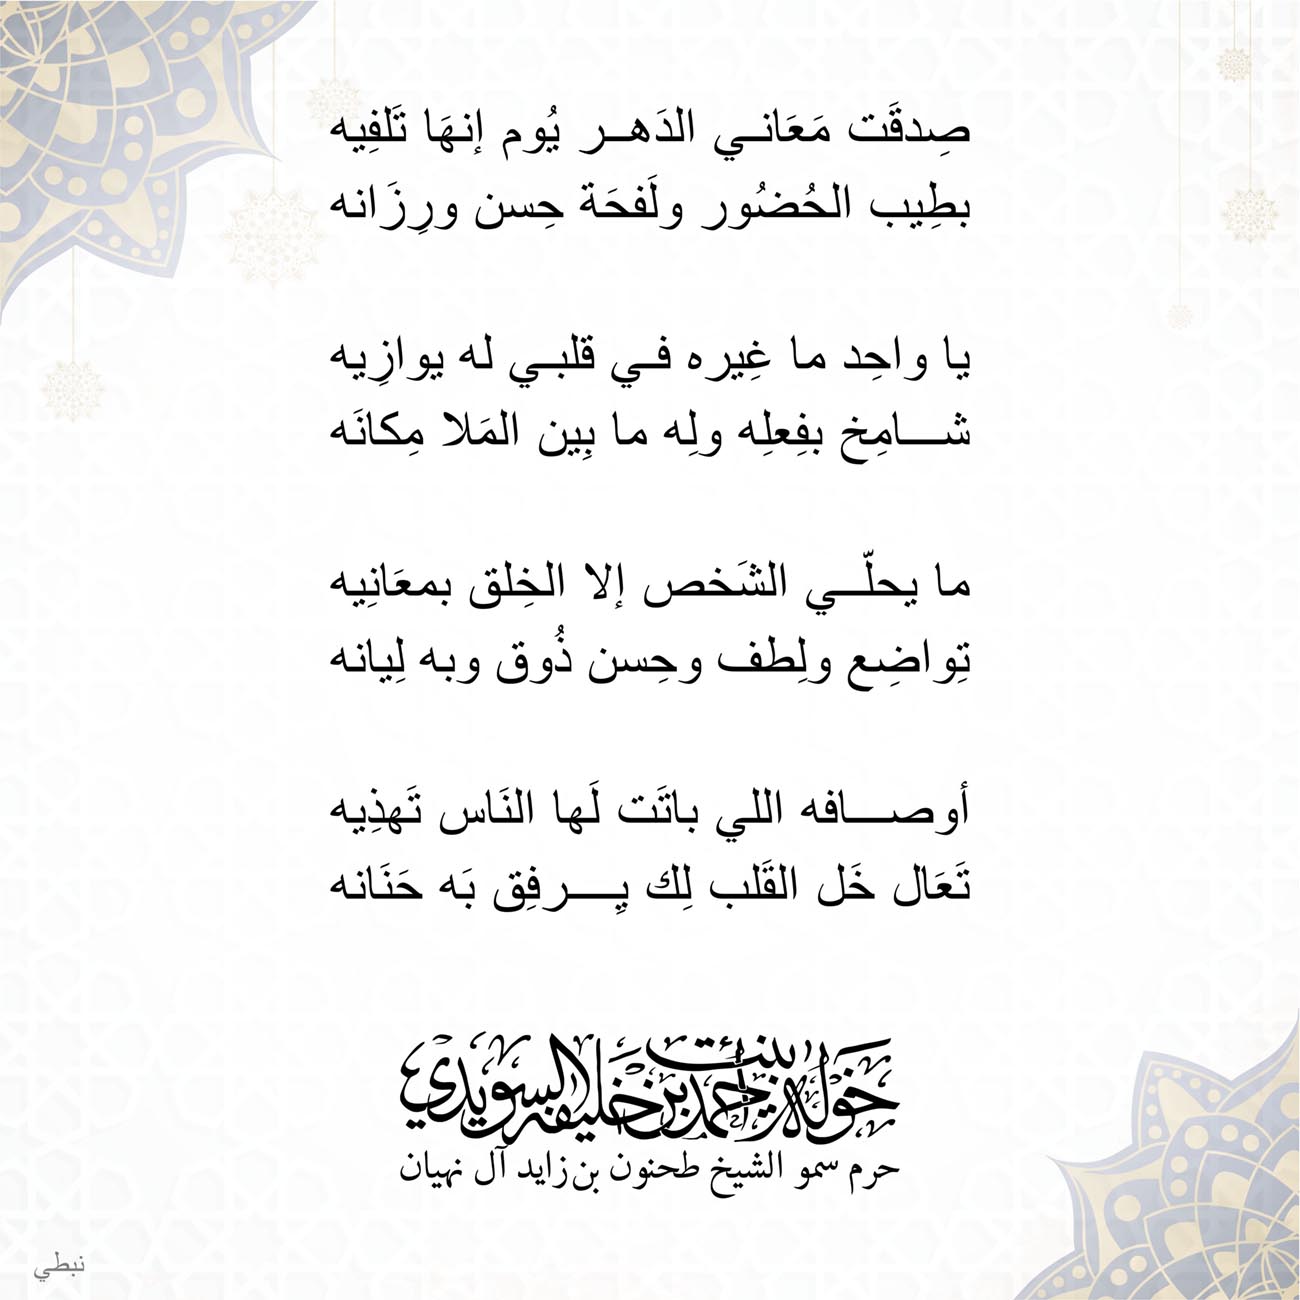 صِدقَت مَعَاني الدَهر يُوم إنهَا تَلفِيه
بطِيب الحُضُور ولَفحَة حِسن ورِزَانه
يا واحِد ما غِيره في قلبي له يوازِيه
شامِخ بفِعلِه ولِه ما بِين المَلا مِكانَه
ما يحلّي الشَخص إلا الخِلق بمعَانِيه
تِواضِع ولِطف وحِسن ذُوق وبه لِيانه
أوصافه اللي باتَت لَها النَاس تَهذِيه
تَعَال خَل القَلب لِك يِرفِق بَه حَنَانه
خولة بنت أحمد بن خليفة السويدي
حرم سمو الشيخ طحنون بن زايد آل نهيان
نبطي